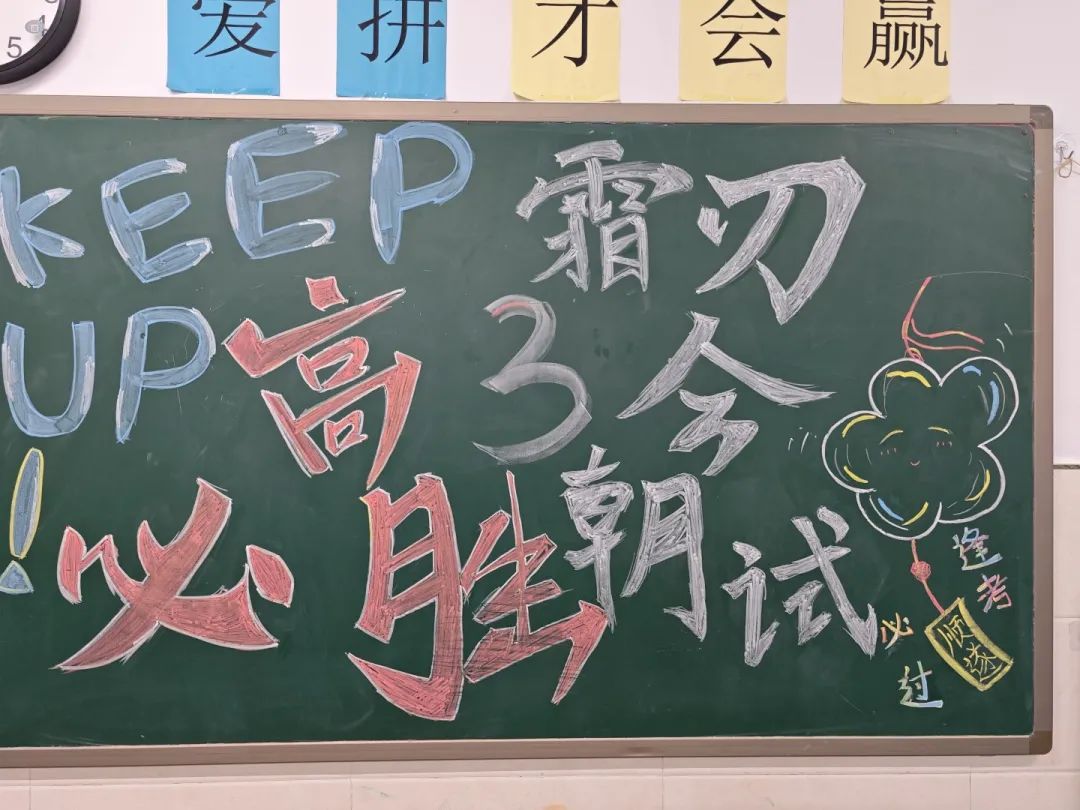 5
4
爱拼才会赢
KEEP
UP
!
高3
必胜
霜刃
今朝试
逢考
必过
顺遂